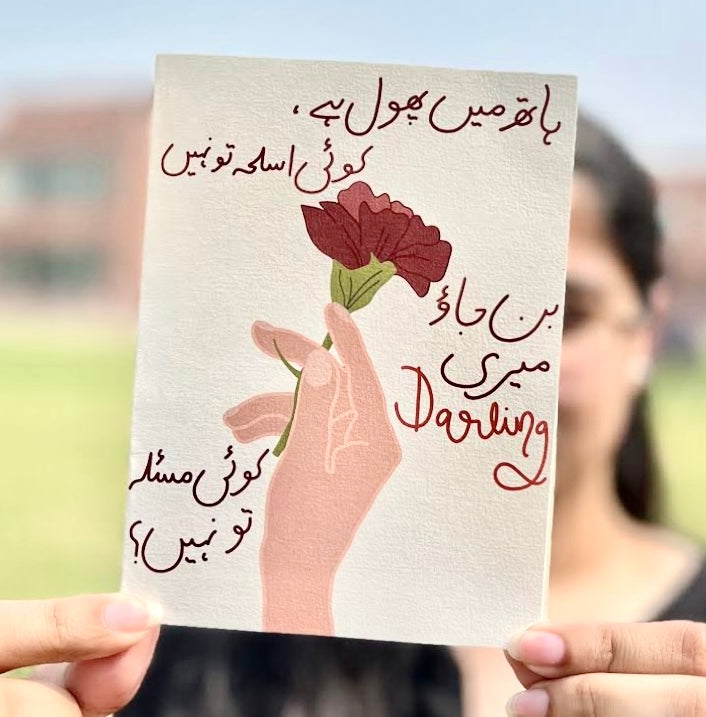 ہاتھ میں پھول ہے ،
کوئی اسلحہ تو نہیں
بن جاؤ
میری
Darling
کوئی مسئلہ
تو نہیں؟